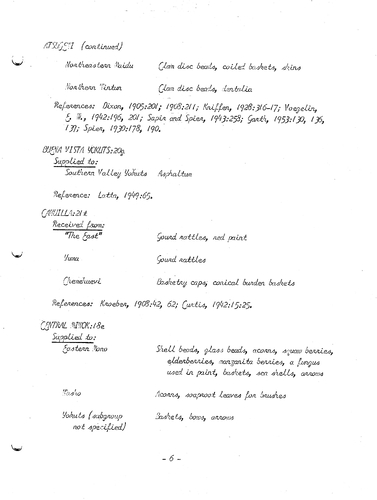 ATSUGEWI (continued)
Northeastern Maidu Clam disc beads, coiled baskets, skins
Northern Wintun Clam disc beads, dentalia
References: Dixon, 1905:201; 1908:211; Kniffen, 1928:316-17; Voegelin,
E. W., 1942:196, 201; Sapir and Spier, 1943:258; Garth, 1953:130, 136,
137; Spier, 1930:178, 190.
BUENA VISTA YOKUTS:20g
Supplied to:
Southern Valley Yokuts Asphaltum
Reference: Latta, 1949:65.
CAHUILLA:21e
Received from:
"The East" Gourd rattles, red paint
Yuma Gourd rattles
Chemehuevi Basketry caps, conical burden baskets
References: Kroeber, 1908:42, 62; Curtis, 1942:15:25.
CENTRAL MIWOK:18e
Supplied to:
Eastern Mono Shell beads, glass beads, acorns, squaw berries,
elderberries, manzanita berries, a fungus
used in paint, baskets, sea shells, arrows
Washo Acorns, soaproot leaves for brushes
Yokuts (subgroup Baskets, bows, arrows
not specified)
- 6 -